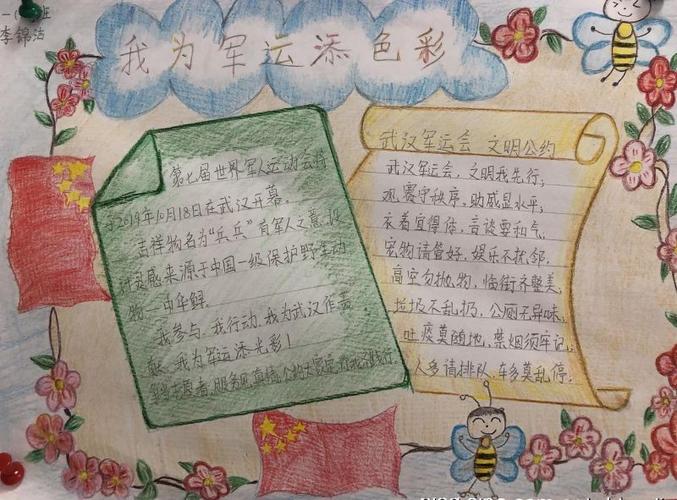 一(
班
李锦洁
我为军运添色彩
第七届世界军人运动会将
于2019年10月18日在武汉开幕。
吉祥物名为“兵兵”首军人之意,设
计灵感来源于中国一级保护野生动
物——中华鲟。
我参与、我行动、我为武汉作贡
献、我为军运添光彩!
武汉军运会 文明公约
武汉军运会,文明我先行;
观赛守秩序,助威显水平;
衣着宜得体,言谈要和气;
宠物请管好,娱乐不扰邻;
高空勿抛物,临街齐整美;
垃圾不乱扔,公厕无异味;
吐痰莫随地,禁烟须牢记;
人多请排队,车多莫乱停。